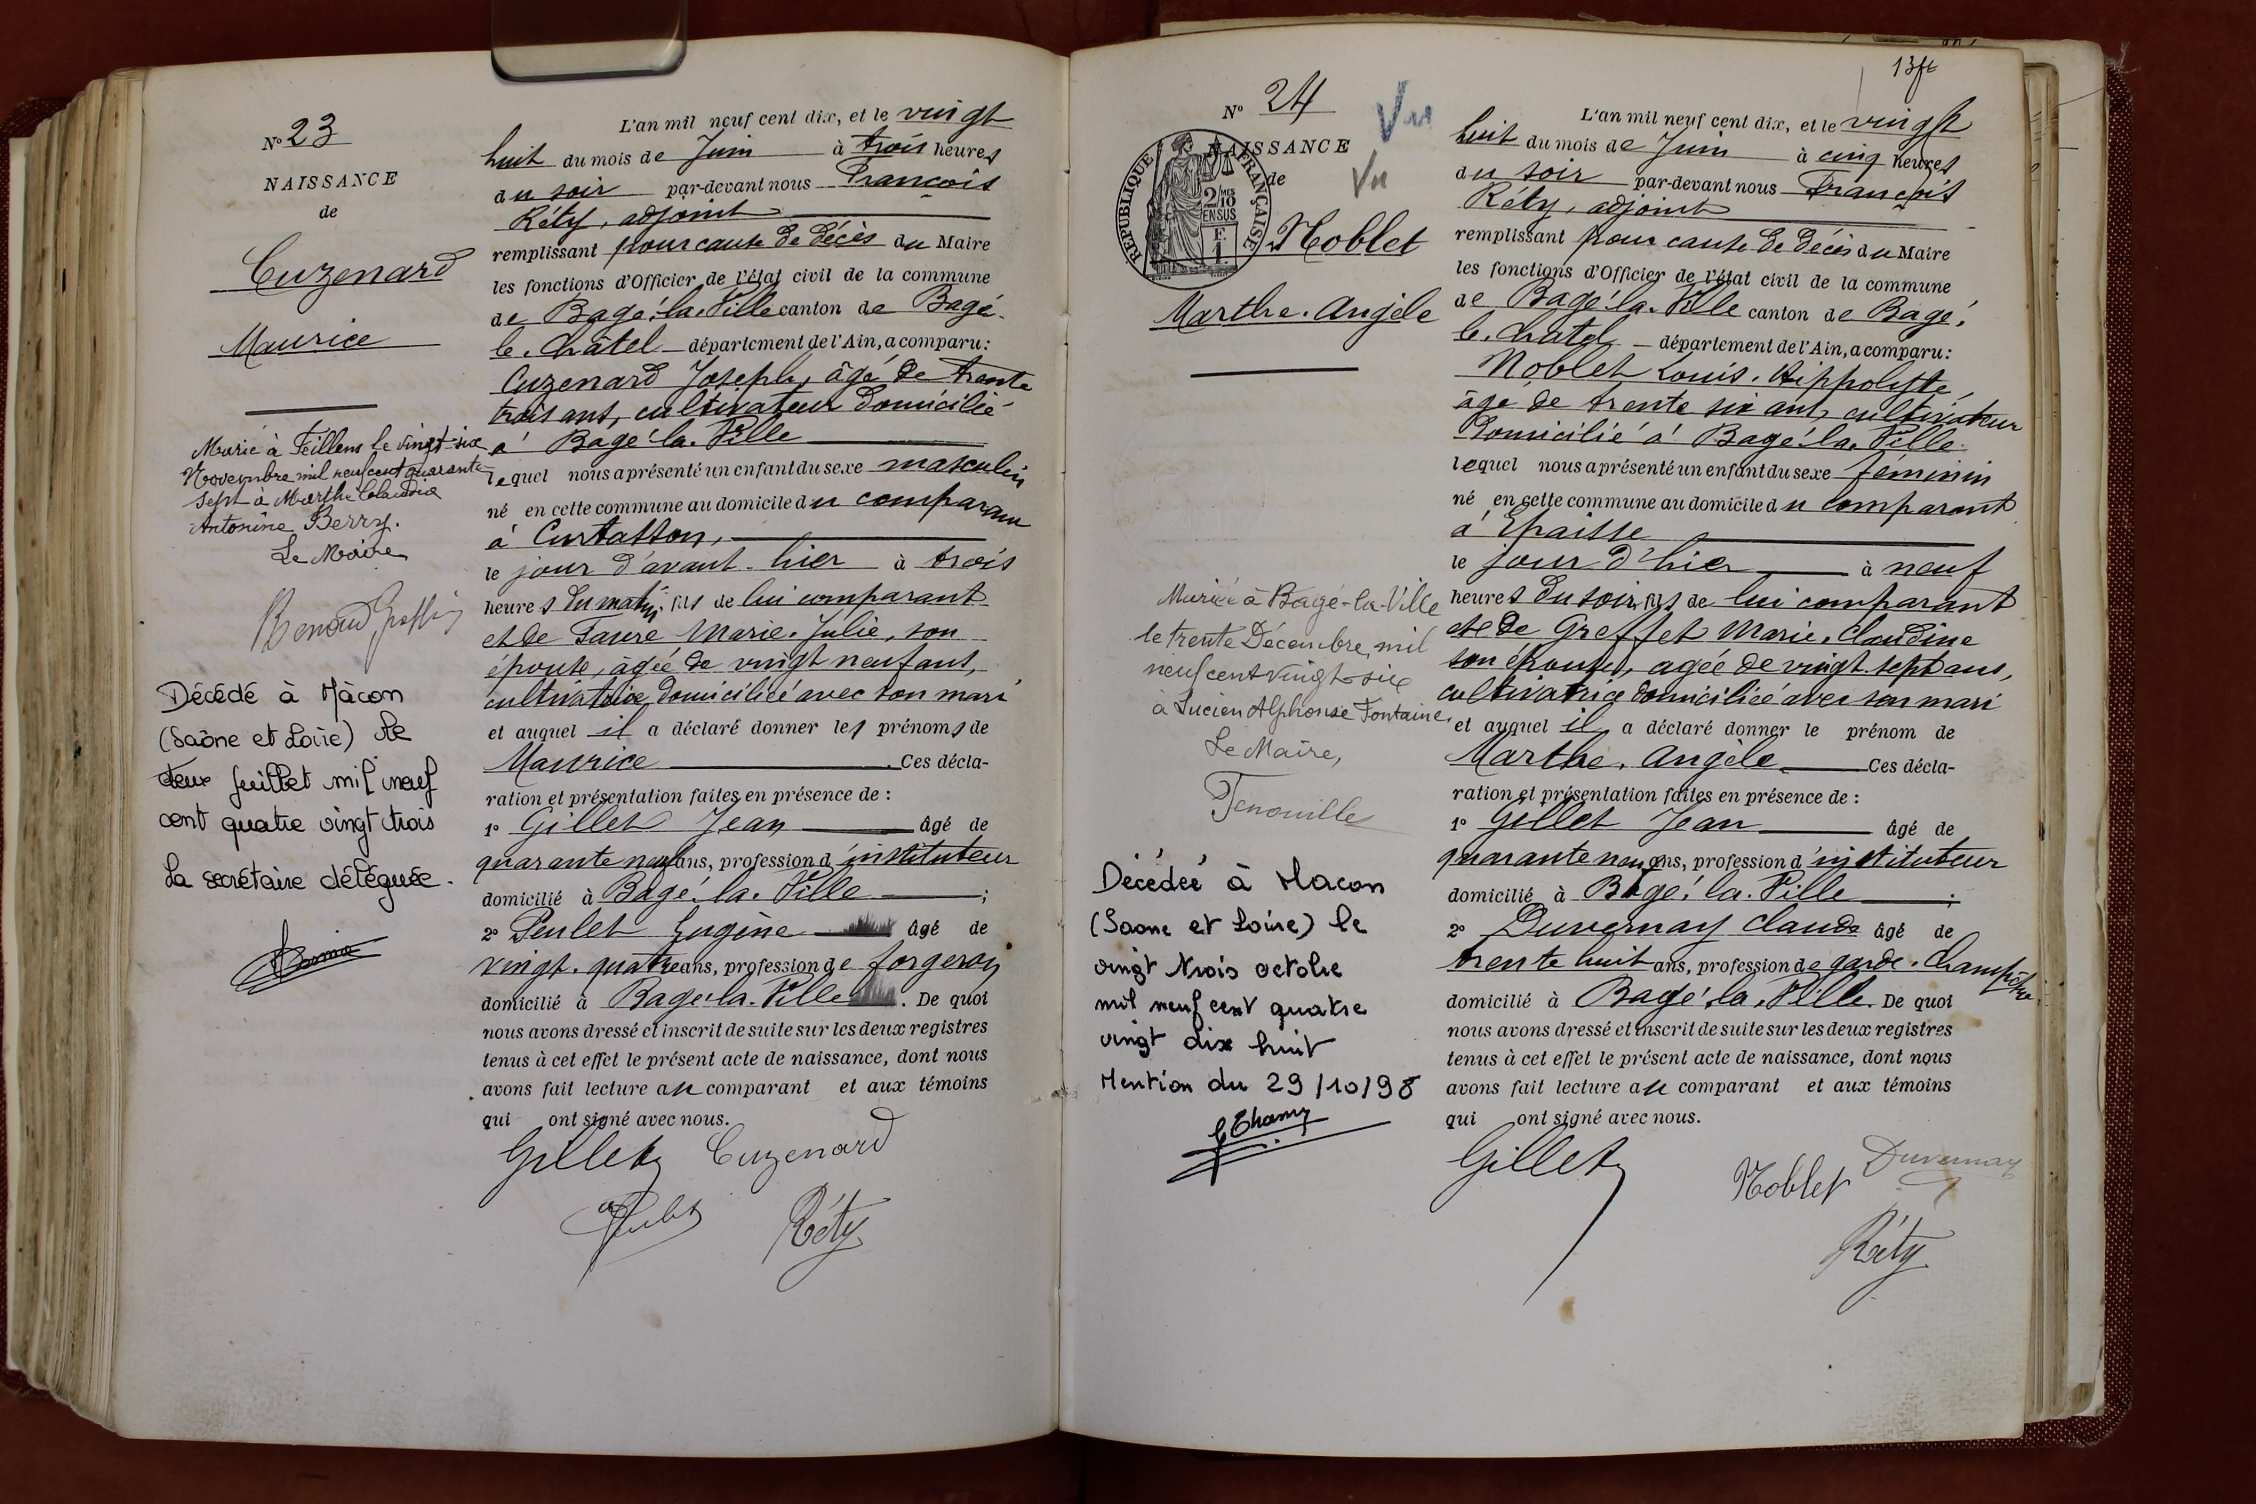 N° 23
NAISSANCE
de
Cuzenard
Maurice
Marié à Feillens le vingt-six
Novembre mil neuf cent quarante
sept à Marthe Claudia
Antonine Berry.
Le Maire
Décédé à Mâcon
(Saône et Loire) le
deux juillet mil neuf
cent quatre vingt trois
La secrétaire déléguée.
L'an mil neuf cent dix, et le vingt
huit du mois de Juin à trois heures
du soir par-devant nous François
Réty, adjoint
remplissant pour cause de décès du Maire
les fonctions d'Officier de l'état civil de la commune
de Bagé-la-Ville canton de Bagé-
le-Châtel département de l'Ain, a comparu:
Cuzenard Joseph, âgé de trente
trois ans, cultivateur domicilié
à Bagé-la-Ville
lequel nous a présenté un enfant du sexe masculin
né en cette commune au domicile du comparant
à Curtasson,
le jour d'avant-hier à trois
heures du matin, fils de lui comparant
et de Faure Marie-Julie, son
épouse, âgée de vingt neuf ans,
cultivatrice domiciliée avec son mari
et auquel il a déclaré donner les prénoms de
Maurice. Ces décla-
ration et présentation faites en présence de :
1° Gillet Jean âgé de
quarante neuf ans, profession d'instituteur
domicilié à Bagé-la-Ville ;
2° Peulet Eugène âgé de
vingt-quatre ans, profession de forgeron
domicilié à Bagé-la-Ville. De quoi
nous avons dressé et inscrit de suite sur les deux registres
tenus à cet effet le présent acte de naissance, dont nous
avons fait lecture au comparant et aux témoins
qui ont signé avec nous.
Gillet Cuzenard
Peulet Réty
N° 24 Vu
NAISSANCE
de Vu
RÉPUBLIQUE FRANÇAISE
2/10
MES
EN SUS
F.
1.
Noblet
Marthe-Angèle
Mariée à Bagé-la-Ville
le trente Décembre mil
neuf cent vingt-six
à Lucien Alphonse Fontaine.
Le Maire,
Décédée à Macon
(Saone et Loire) le
vingt trois octobre
mil neuf cent quatre
vingt dix huit
Mention du 29/10/98
L'an mil neuf cent dix, et le vingt
huit du mois de Juin à cinq heures
du soir par-devant nous François
Réty, adjoint
remplissant pour cause de décès du Maire
les fonctions d'Officier de l'état civil de la commune
de Bagé-la-Ville canton de Bagé-
le-Chatel département de l'Ain, a comparu:
Noblet Louis-Hippolyte,
âgé de trente six ans, cultivateur
domicilié à Bagé-la-Ville
lequel nous a présenté un enfant du sexe féminin
né en cette commune au domicile du comparant
à Epaisse
le jour d'hier à neuf
heures du soir, fils de lui comparant
et de Greffet Marie-Claudine
son épouse, agée de vingt sept ans,
cultivatrice domiciliée avec son mari
et auquel il a déclaré donner le prénom de
Marthe-Angèle. Ces décla-
ration et présentation faites en présence de :
1° Gillet Jean âgé de
quarante neuf ans, profession d'instituteur
domicilié à Bagé-la-Ville ;
2° Duvernay Claude âgé de
trente huit ans, profession de garde-champêtre
domicilié à Bagé-la-Ville. De quoi
nous avons dressé et inscrit de suite sur les deux registres
tenus à cet effet le présent acte de naissance, dont nous
avons fait lecture au comparant et aux témoins
qui ont signé avec nous.
Gillet Noblet Duvernay
Réty